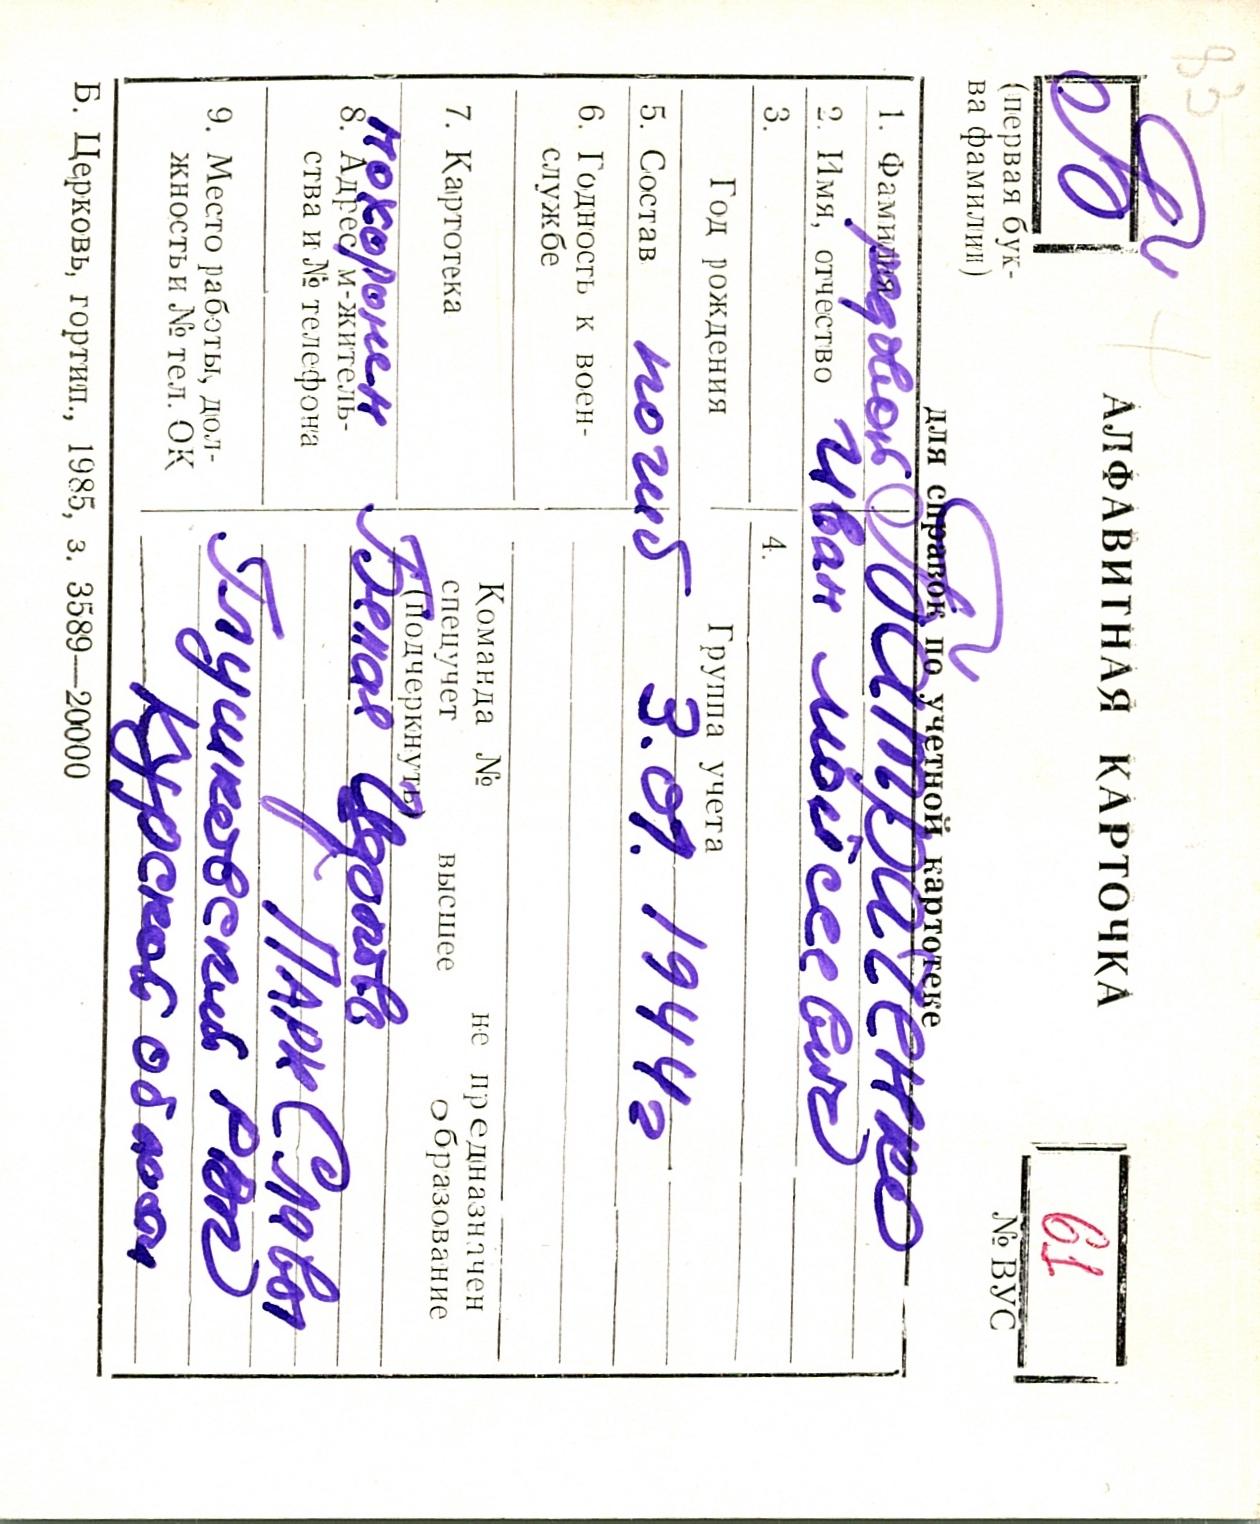 АЛФАВИТНАЯ КАРТОЧКА
для справок по учетной картотеке
(первая бук-
ва фамилии)
61
№ ВУС
1. Фамилия рядовой
2. Имя, отчество Иван Мойсеевич
3.
4.
Год рождения
Группа учета
5. Состав погиб 3.09.1944г
6. Годность к воен-
службе
7. Картотека
Команда № не предназначен
спецучет высшее образование
(подчеркнуть)
похоронен
8. Адрес м-житель-
ства и № телефона
Белая Церковь
Парк Славы
9. Место работы, дол-
жность и № тел. ОК
Глушковский р-он
Курской обл
Б. Церковь, гортип., 1985, з. 3589—20000